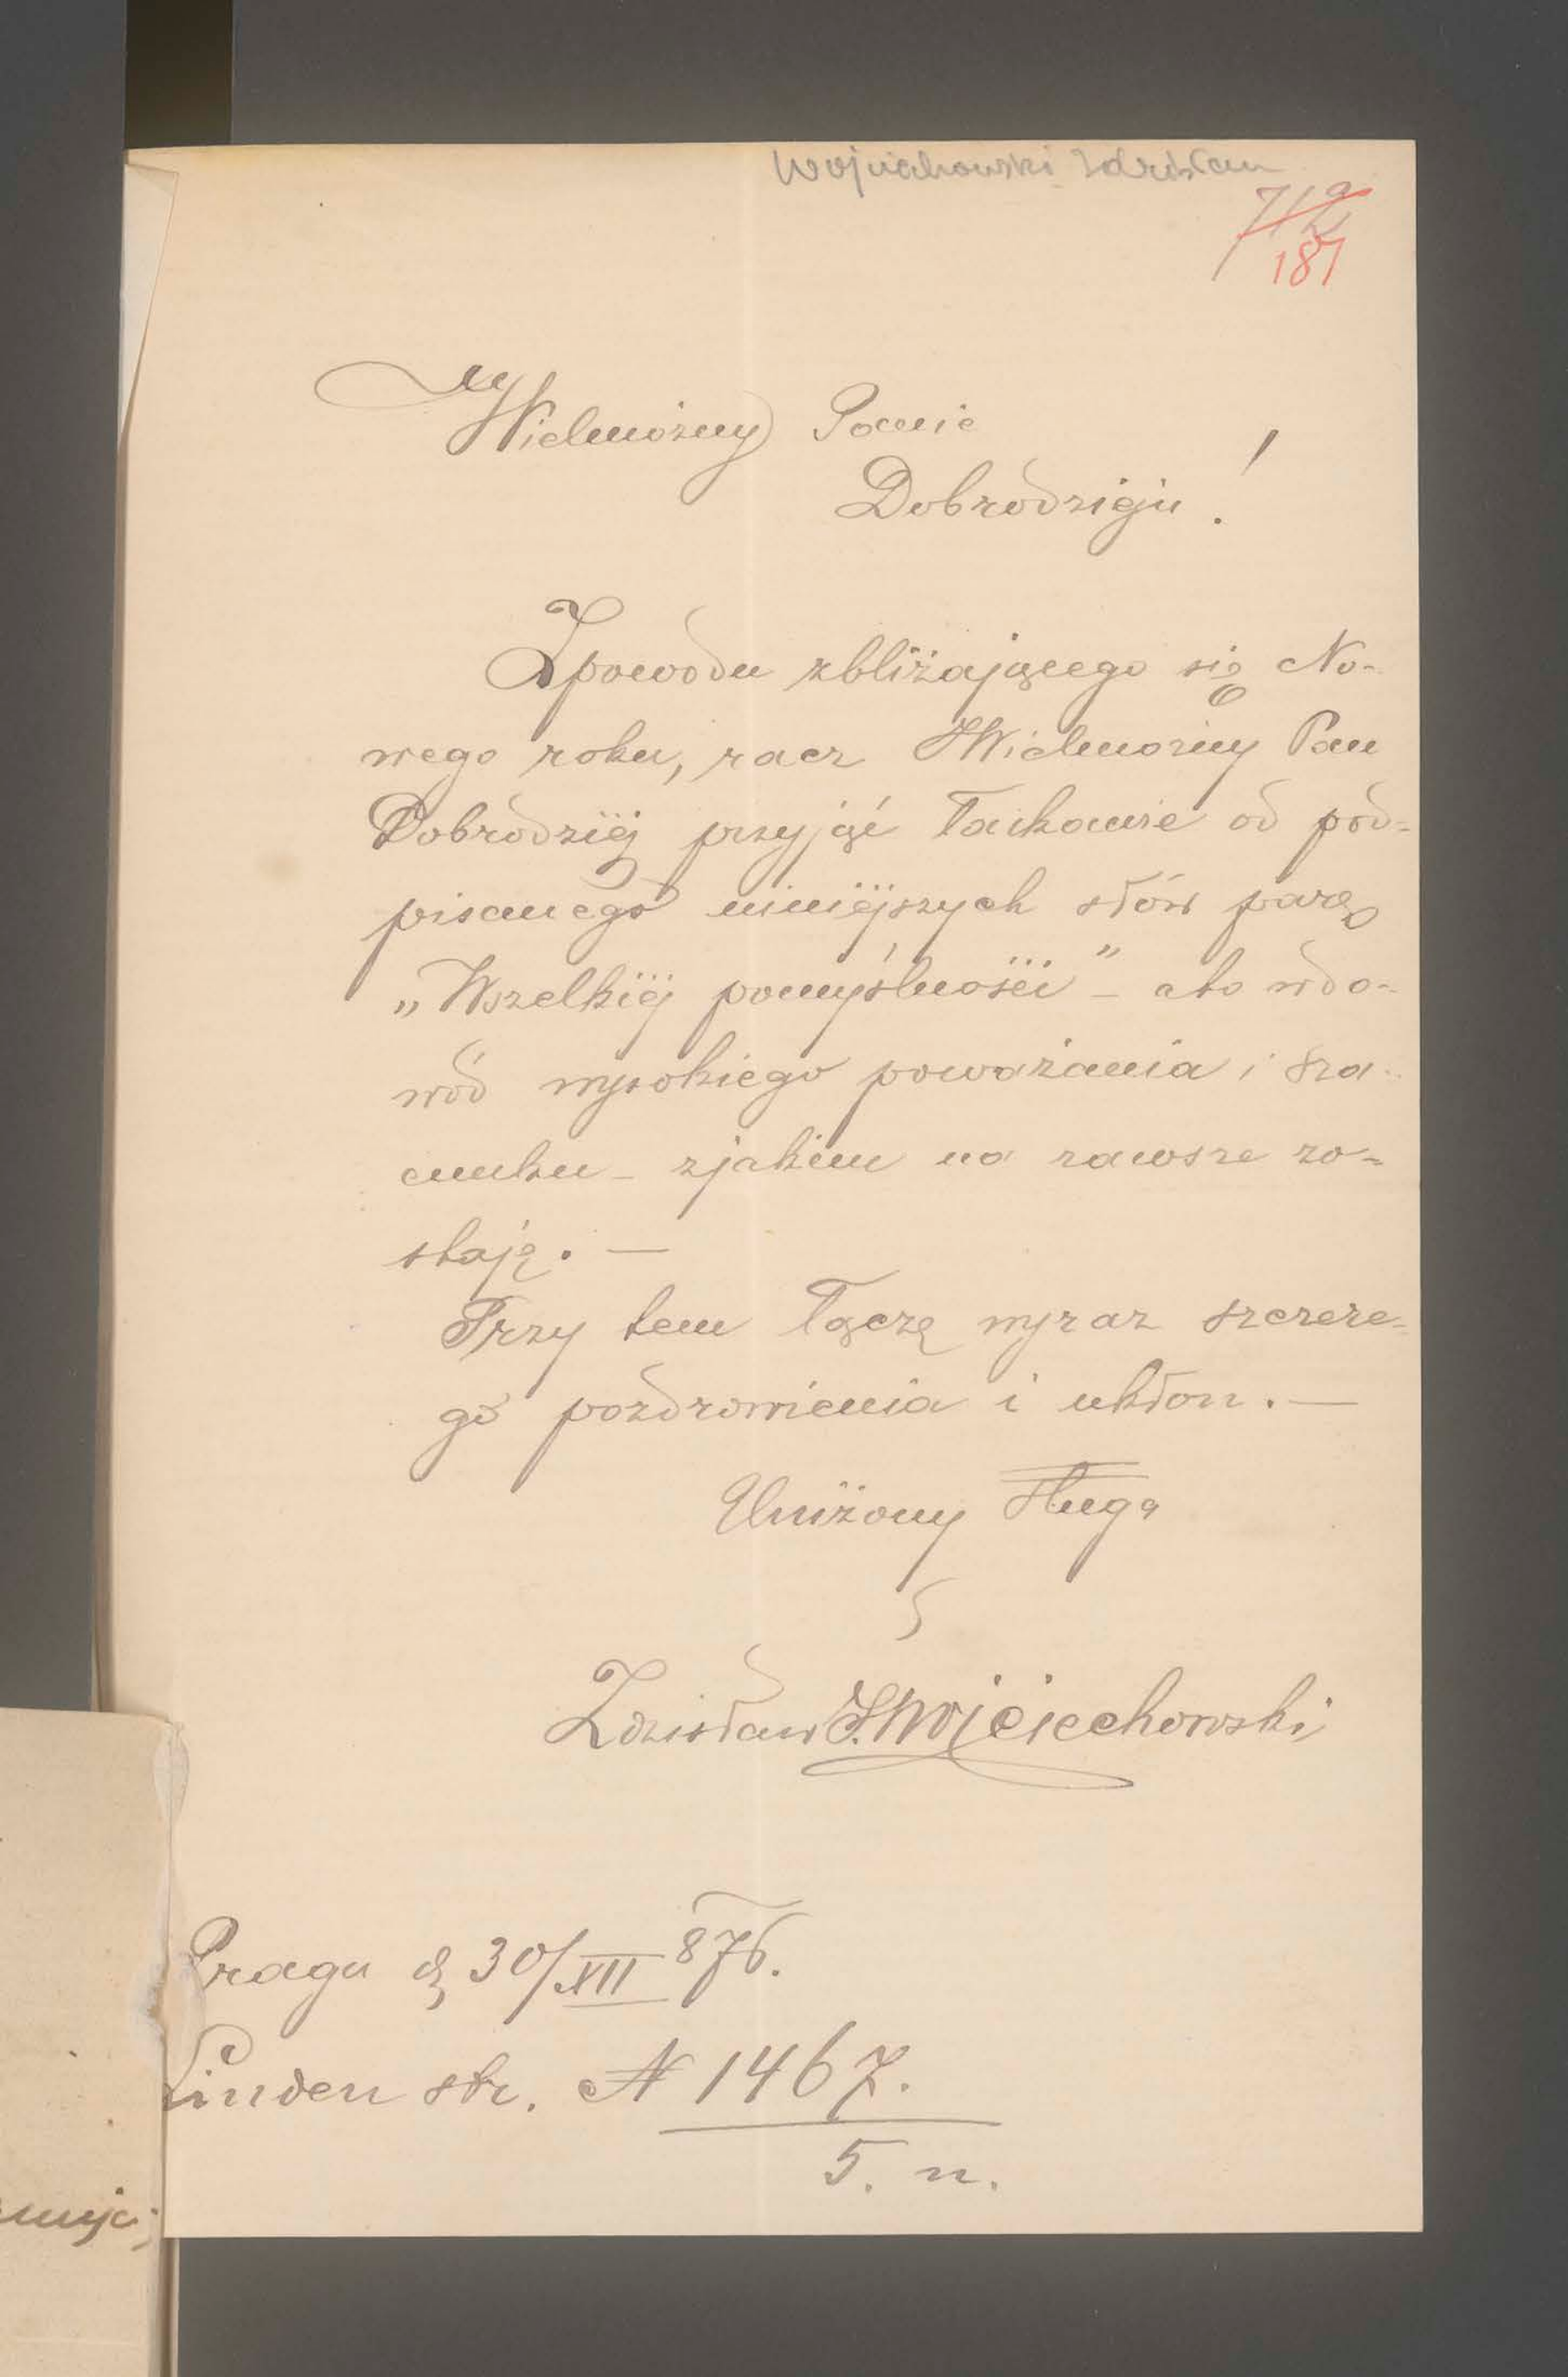 Wojciechowski Zdzisław
187
Wielmożny Panie
Dobrodzieju!
Z powodu zbliżającego się No-
wego roku, racz JWielmożny Pan
Dobrodziej przyjąć łaskawie od pod-
pisanego niniejszych słów parę
„Wszelkiej pomyślności" – a to w do-
wód wysokiego poważania i sza-
cunku – z jakiem na zawsze zo-
staję. —
Przy tem łączę wyraz szczere-
go pozdrowienia i ukłon. —
Uniżony Sługa
Zdzisław J. Wojciechowski
Praga d 30/XII 876.
Linden str. N 1467.
5. n.